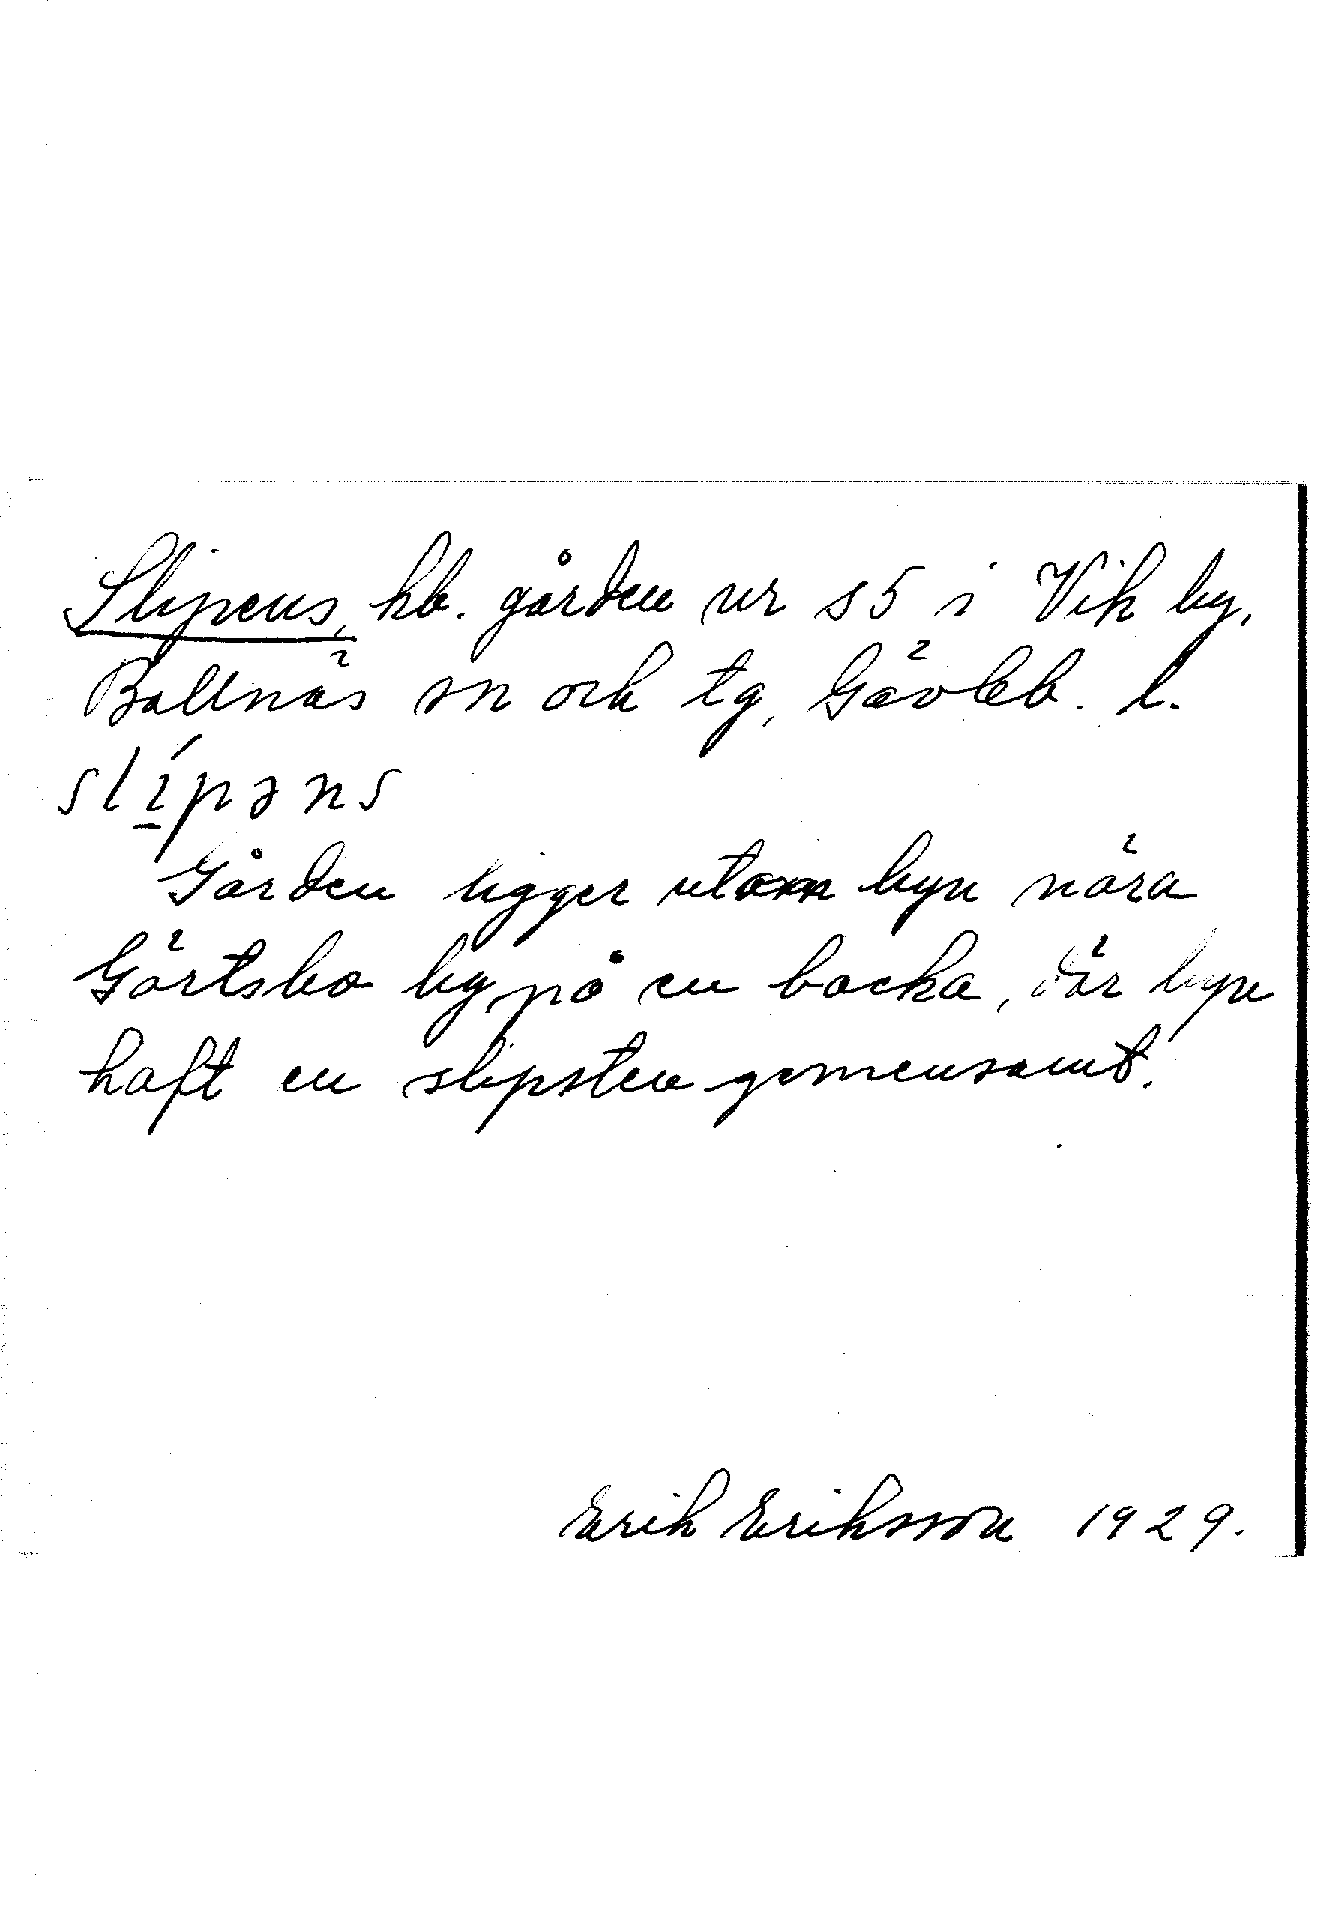 Slipens, hb. gården nr 85 i Vik by,
Bollnäs sn och tg, Gävleb. l.
slípəns
Gården ligger utom byn nära
Gärtsbo by på en backa, där byn
haft en slipsten gemensamt.
Erik Eriksson 1929.